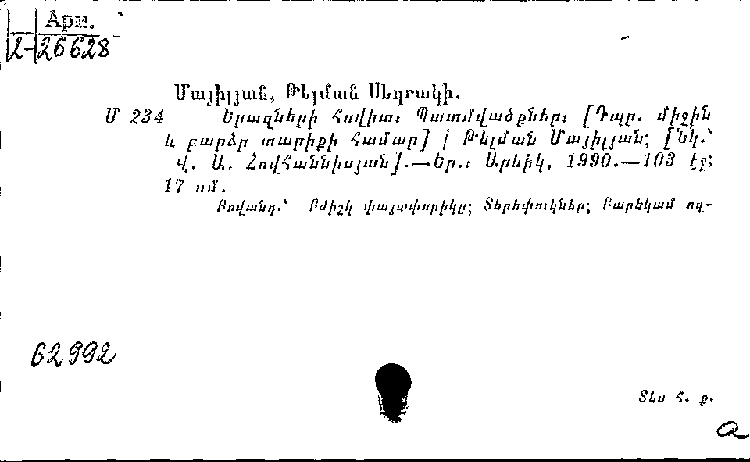 Арм.
2-26628
Մայիլյան, Թելման Սեդրակի.
Մ 234 Երազների հովիտ: Պատմվածքներ: [Դպր. միջին
և բարձր տարիքի համար] / Թելման Մայիլյան; [Նկ.՝
Վ. Ա. Հովհաննիսյան].—Եր.: Արևիկ, 1990.—103 էջ;
17 սմ.
Բովանդ.՝ Բժիշկ փայտփորիկը; Տերեփուկներ; Բարեկամ ոզ-
62992
Տես հ. ք.
а